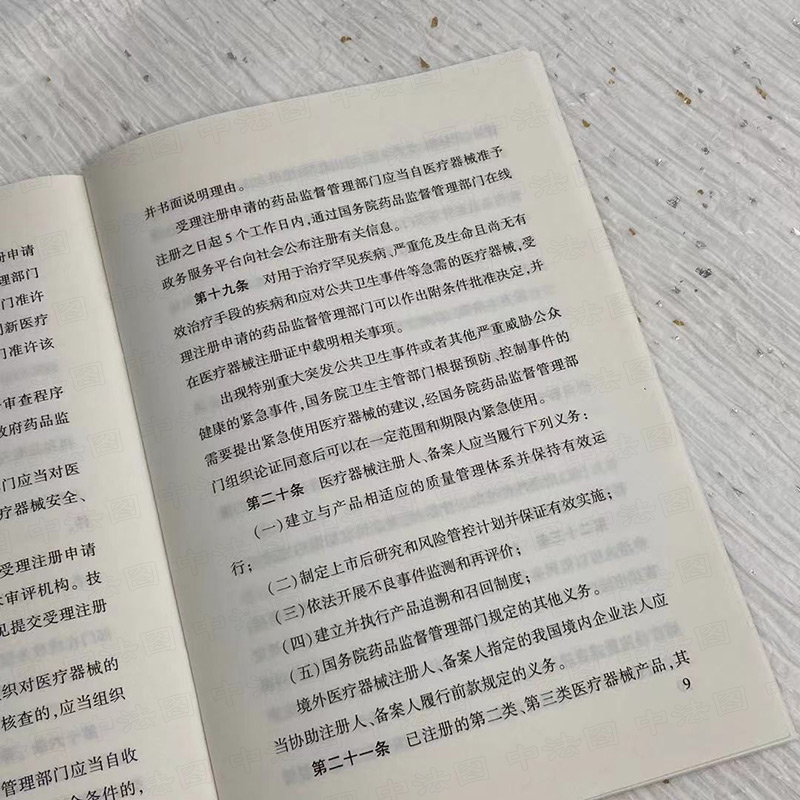 册申请
理部门
门准许
创新医疗
门准许该
审查程序
政府药品监
门应当对医
疗器械安全、
受理注册申请
术审评机构。技
见提交受理注册
织对医疗器械的
核查的，应当组织
管理部门应当自收
合条件的，
并书面说明理由。
受理注册申请的药品监督管理部门应当自医疗器械准予
注册之日起5个工作日内，通过国务院药品监督管理部门在线
政务服务平台向社会公布注册有关信息。
第十九条 对用于治疗罕见疾病、严重危及生命且尚无有
效治疗手段的疾病和应对公共卫生事件等急需的医疗器械，受
理注册申请的药品监督管理部门可以作出附条件批准决定，并
在医疗器械注册证中载明相关事项。
出现特别重大突发公共卫生事件或者其他严重威胁公众
健康的紧急事件，国务院卫生主管部门根据预防、控制事件的
需要提出紧急使用医疗器械的建议，经国务院药品监督管理部
门组织论证同意后可以在一定范围和期限内紧急使用。
第二十条 医疗器械注册人、备案人应当履行下列义务：
（一）建立与产品相适应的质量管理体系并保持有效运
行；
（二）制定上市后研究和风险管控计划并保证有效实施；
（三）依法开展不良事件监测和再评价；
（四）建立并执行产品追溯和召回制度；
（五）国务院药品监督管理部门规定的其他义务。
境外医疗器械注册人、备案人指定的我国境内企业法人应
当协助注册人、备案人履行前款规定的义务。
第二十一条 已注册的第二类、第三类医疗器械产品，其
9